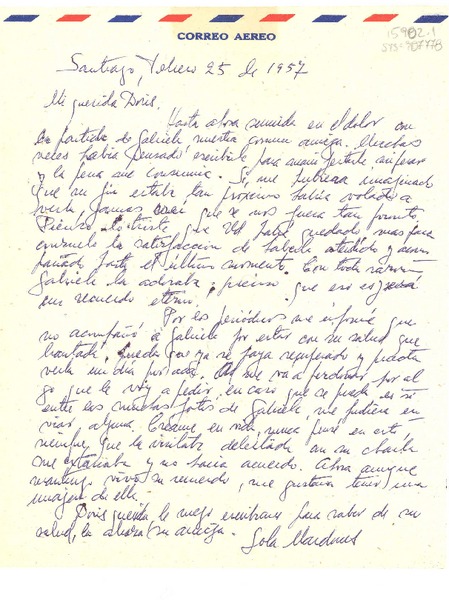 CORREO AEREO
15902.1
Santiago, Febrero 25 de 1957
Mi querida Doris,
Hasta ahora sumida en el dolor con
la partida de Gabriela nuestra común amiga. Muchas
veces había pensado escribirle para manifestarle mi pesar
y la pena que consumía. Si me hubiera imaginado
que su fin estaba tan próximo habría volado a
verla, jamás creí que se nos fuera tan pronto.
Pienso lo triste que Ud. habrá quedado mas para
consuelo la satisfacción de haberla atendido y acom
pañado hasta el último momento. Con toda razón
Gabriela la adoraba, pienso que ese es
un recuerdo eterno.
Por los periódicos me informé que
no acompañó a Gabriela por estar con su salud que
brantada. Quedo que ya se haya recuperado y pueda
verla un día. Ud. me va a perdonar por al
go que le voy a pedir, en caso que se pueda es si
entre las muchas fotos de Gabriela me pudiera en
viar alguna. Créame en vida nunca pensé en esto,
siempre que la visitaba deleitada con su charla
me extasiaba y no hacía acuerdo. Ahora aunque
mantengo vivo su recuerdo, me gustaría tener una
imagen de ella.
Doris querida, le ruego escribirme para saber de su
salud, la abraza su amiga.
Lola Mardones